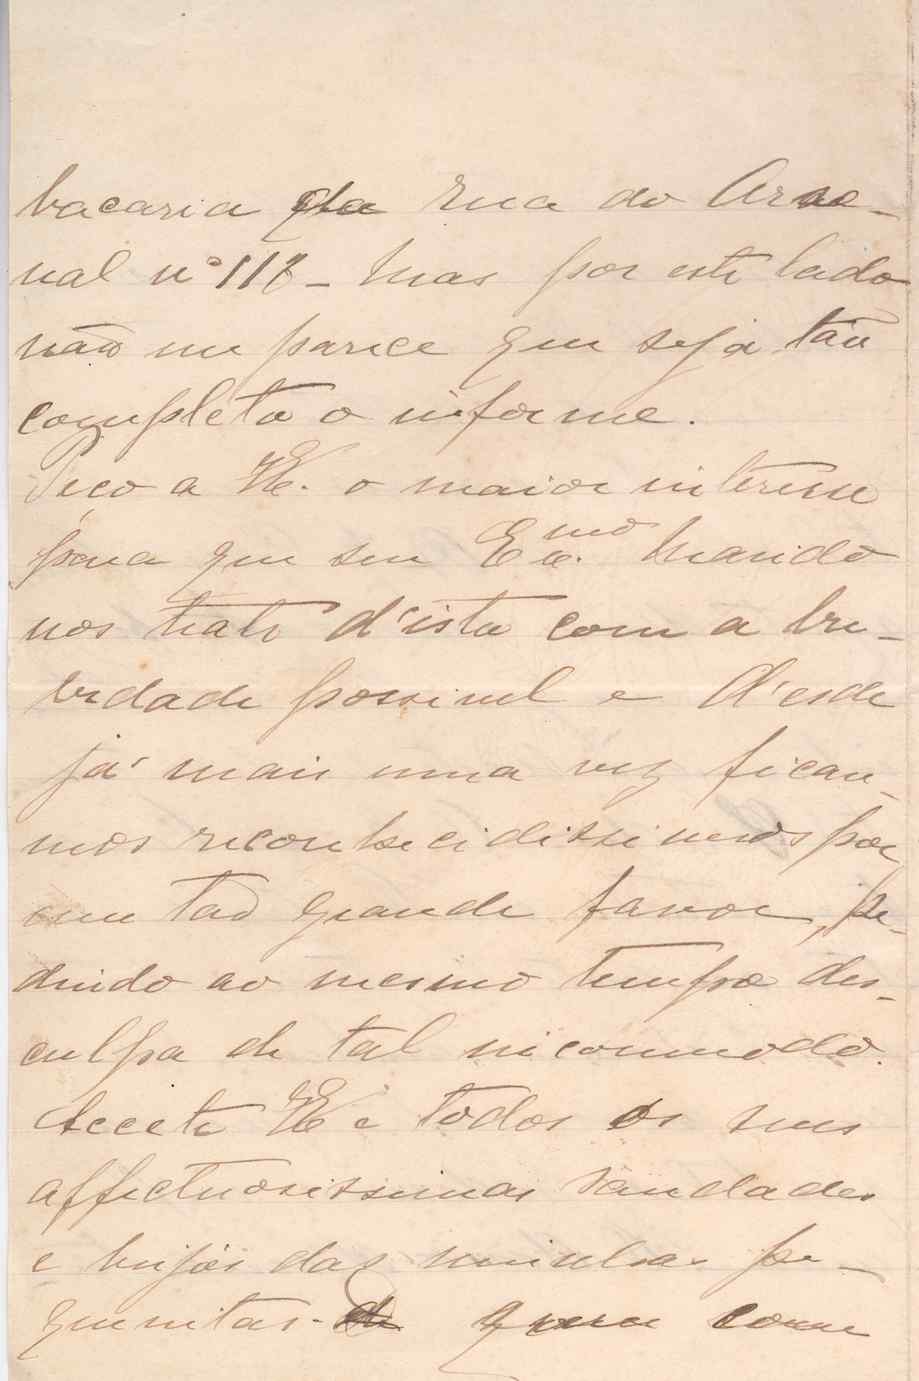 bacaria da rua do Arse-
nal nº 118 - Mas por este lado
não me parece que seja tão
completo o informe.
Peço a VE. o maior interesse
para que seu Exmo. Marido
nos trate d'isto com a bre-
vidade possivel e d'esde
já mais uma vez fican-
mos reconhecidissimos por
um tão grande favor, pe-
dindo ao mesmo tempo des-
culpa de tal incommodo.
Acceite VE e todos os seus
affectuosissimas saudades
e beijos das minhas pe-
quenitas. quem com